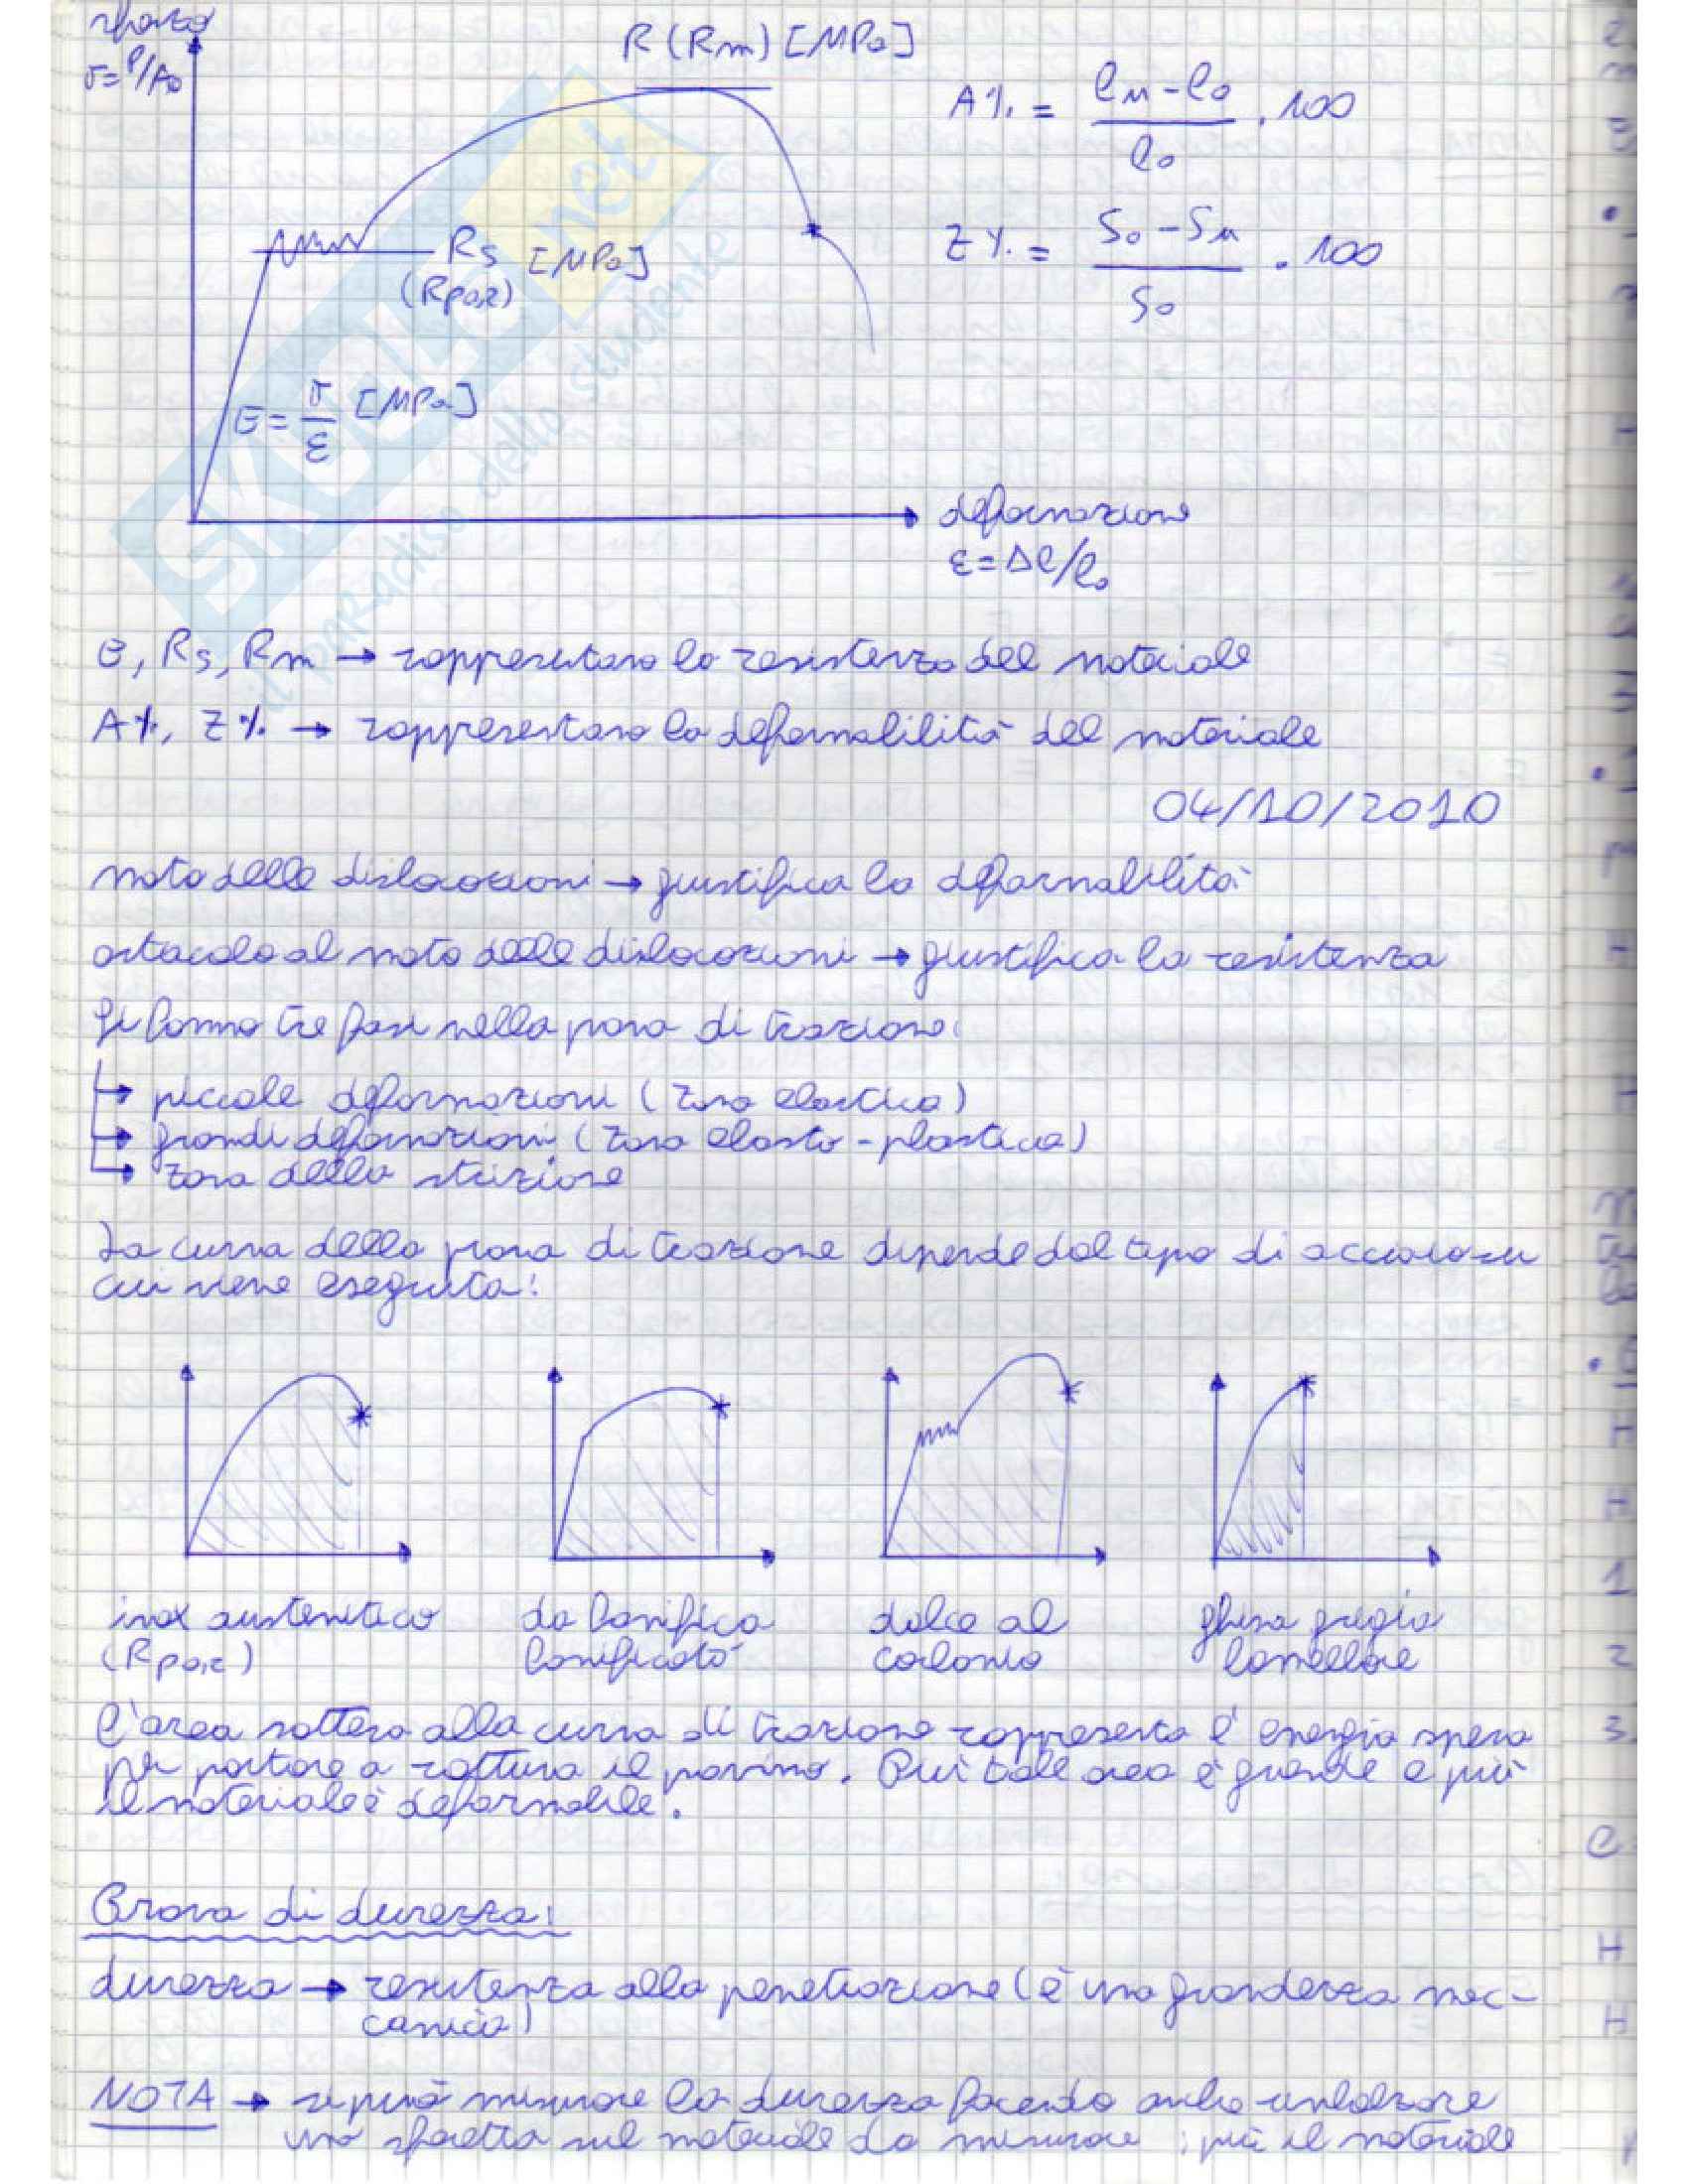 sforzo
σ=P/A₀
R (Rm) [MPa]
A% = (lu - l₀) / l₀ · 100
Rs [MPa]
(Rp0,2)
Z% = (S₀ - Su) / S₀ · 100
E = σ/ε [MPa]
deformazione
ε = Δl/l₀
SKUOLA.net
il paradiso dello studente
E, Rs, Rm → rappresentano la resistenza del materiale
A%, Z% → rappresentano la deformabilità del materiale
04/10/2010
moto delle dislocazioni → giustifica la deformabilità
ostacolo al moto delle dislocazioni → giustifica la resistenza
Si hanno tre fasi nella prova di trazione:
→ piccole deformazioni (zona elastica)
→ grandi deformazioni (zona elasto-plastica)
→ zona della strizione
La curva della prova di trazione dipende dal tipo di acciaio su
cui viene eseguita:
inox austenitico
(Rp0,2)
da bonifica
bonificato
dolce al
carbonio
ghisa grigia
lamellare
L'area sottesa alla curva di trazione rappresenta l'energia spesa
per portare a rottura il provino. Più tale area è grande e più
il materiale è deformabile.
Prova di durezza:
durezza → resistenza alla penetrazione (è una grandezza mec-
canica)
NOTA → si può misurare la durezza facendo anche rimbalzare
una sferetta sul materiale da misurare ; più il materiale